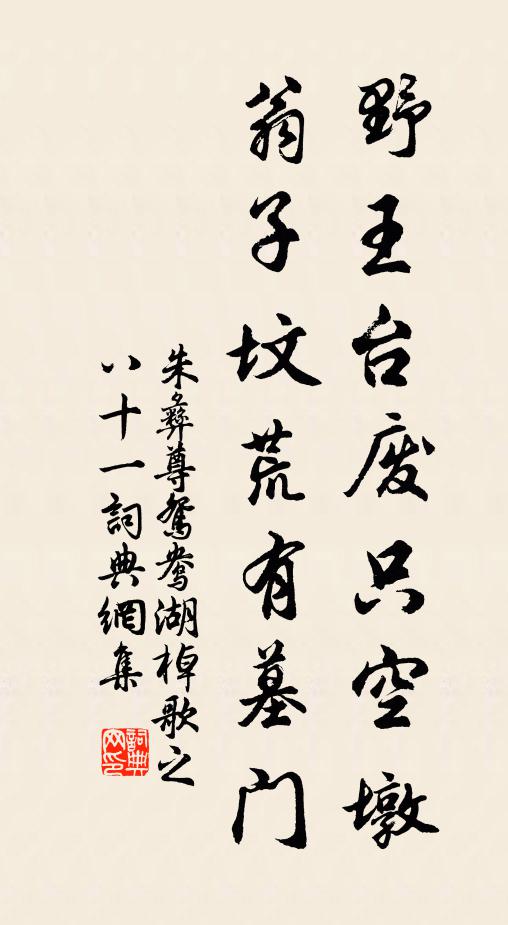 野王台废只空墩
翁子坟荒有墓门
朱彝尊鴛鴦湖棹歌之
八十一詞典網集
詞典网印